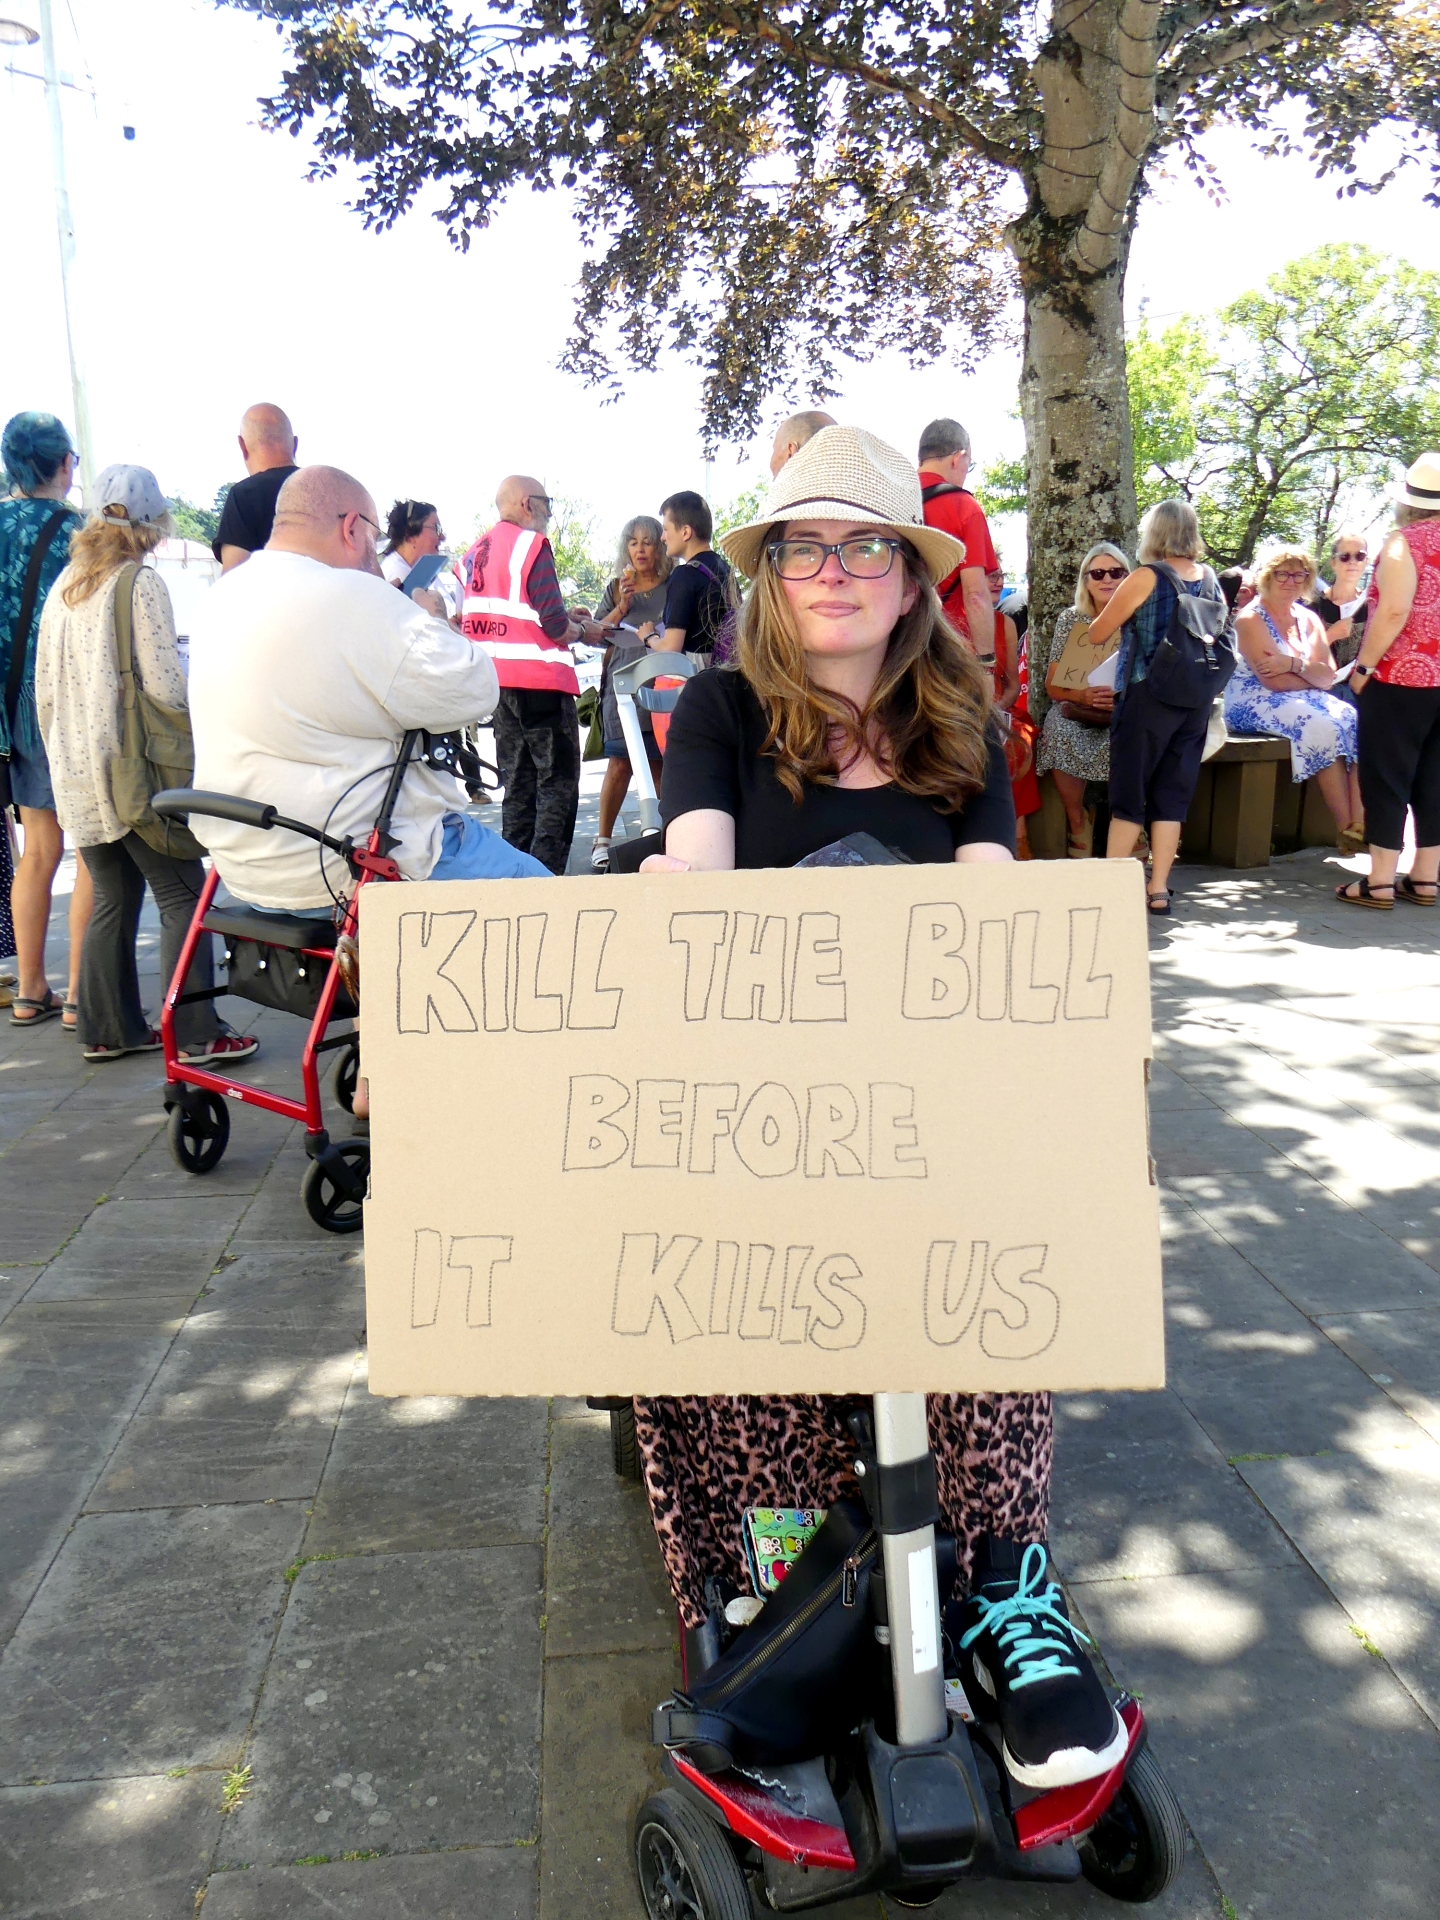 EWARD
KILL THE BILL
BEFORE
IT KILLS US